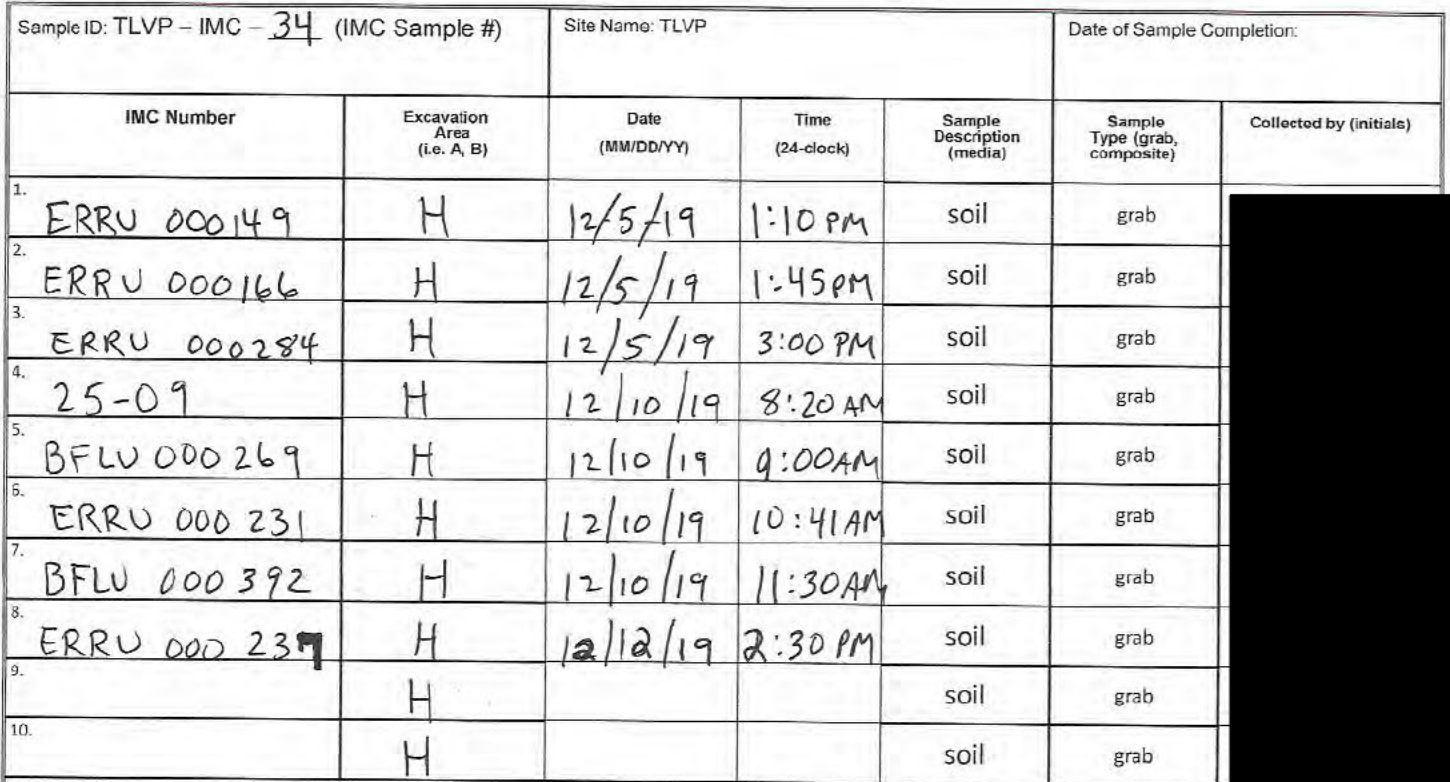 Sample ID: TLVP – IMC – 34 (IMC Sample #) Site Name: TLVP Date of Sample Completion:
IMC Number Excavation Area (i.e. A, B) Date (MM/DD/YY) Time (24-clock) Sample Description (media) Sample Type (grab, composite) Collected by (initials)
1. ERRU 000149 H 12/5/19 1:10 PM soil grab
2. ERRU 000166 H 12/5/19 1:45 PM soil grab
3. ERRU 000284 H 12/5/19 3:00 PM soil grab
4. 25-09 H 12/10/19 8:20 AM soil grab
5. BFLU 000269 H 12/10/19 9:00 AM soil grab
6. ERRU 000 231 H 12/10/19 10:41 AM soil grab
7. BFLU 000 392 H 12/10/19 11:30 AM soil grab
8. ERRU 000 237 H 12/12/19 2:30 PM soil grab
9. H soil grab
10. H soil grab